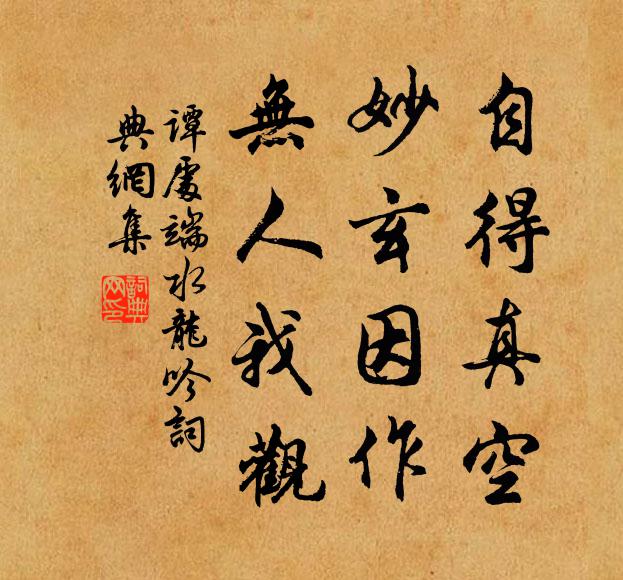 自得真空
妙玄因作
無人我觀
譚處端水龍吟詞
典網集
詞典
网印